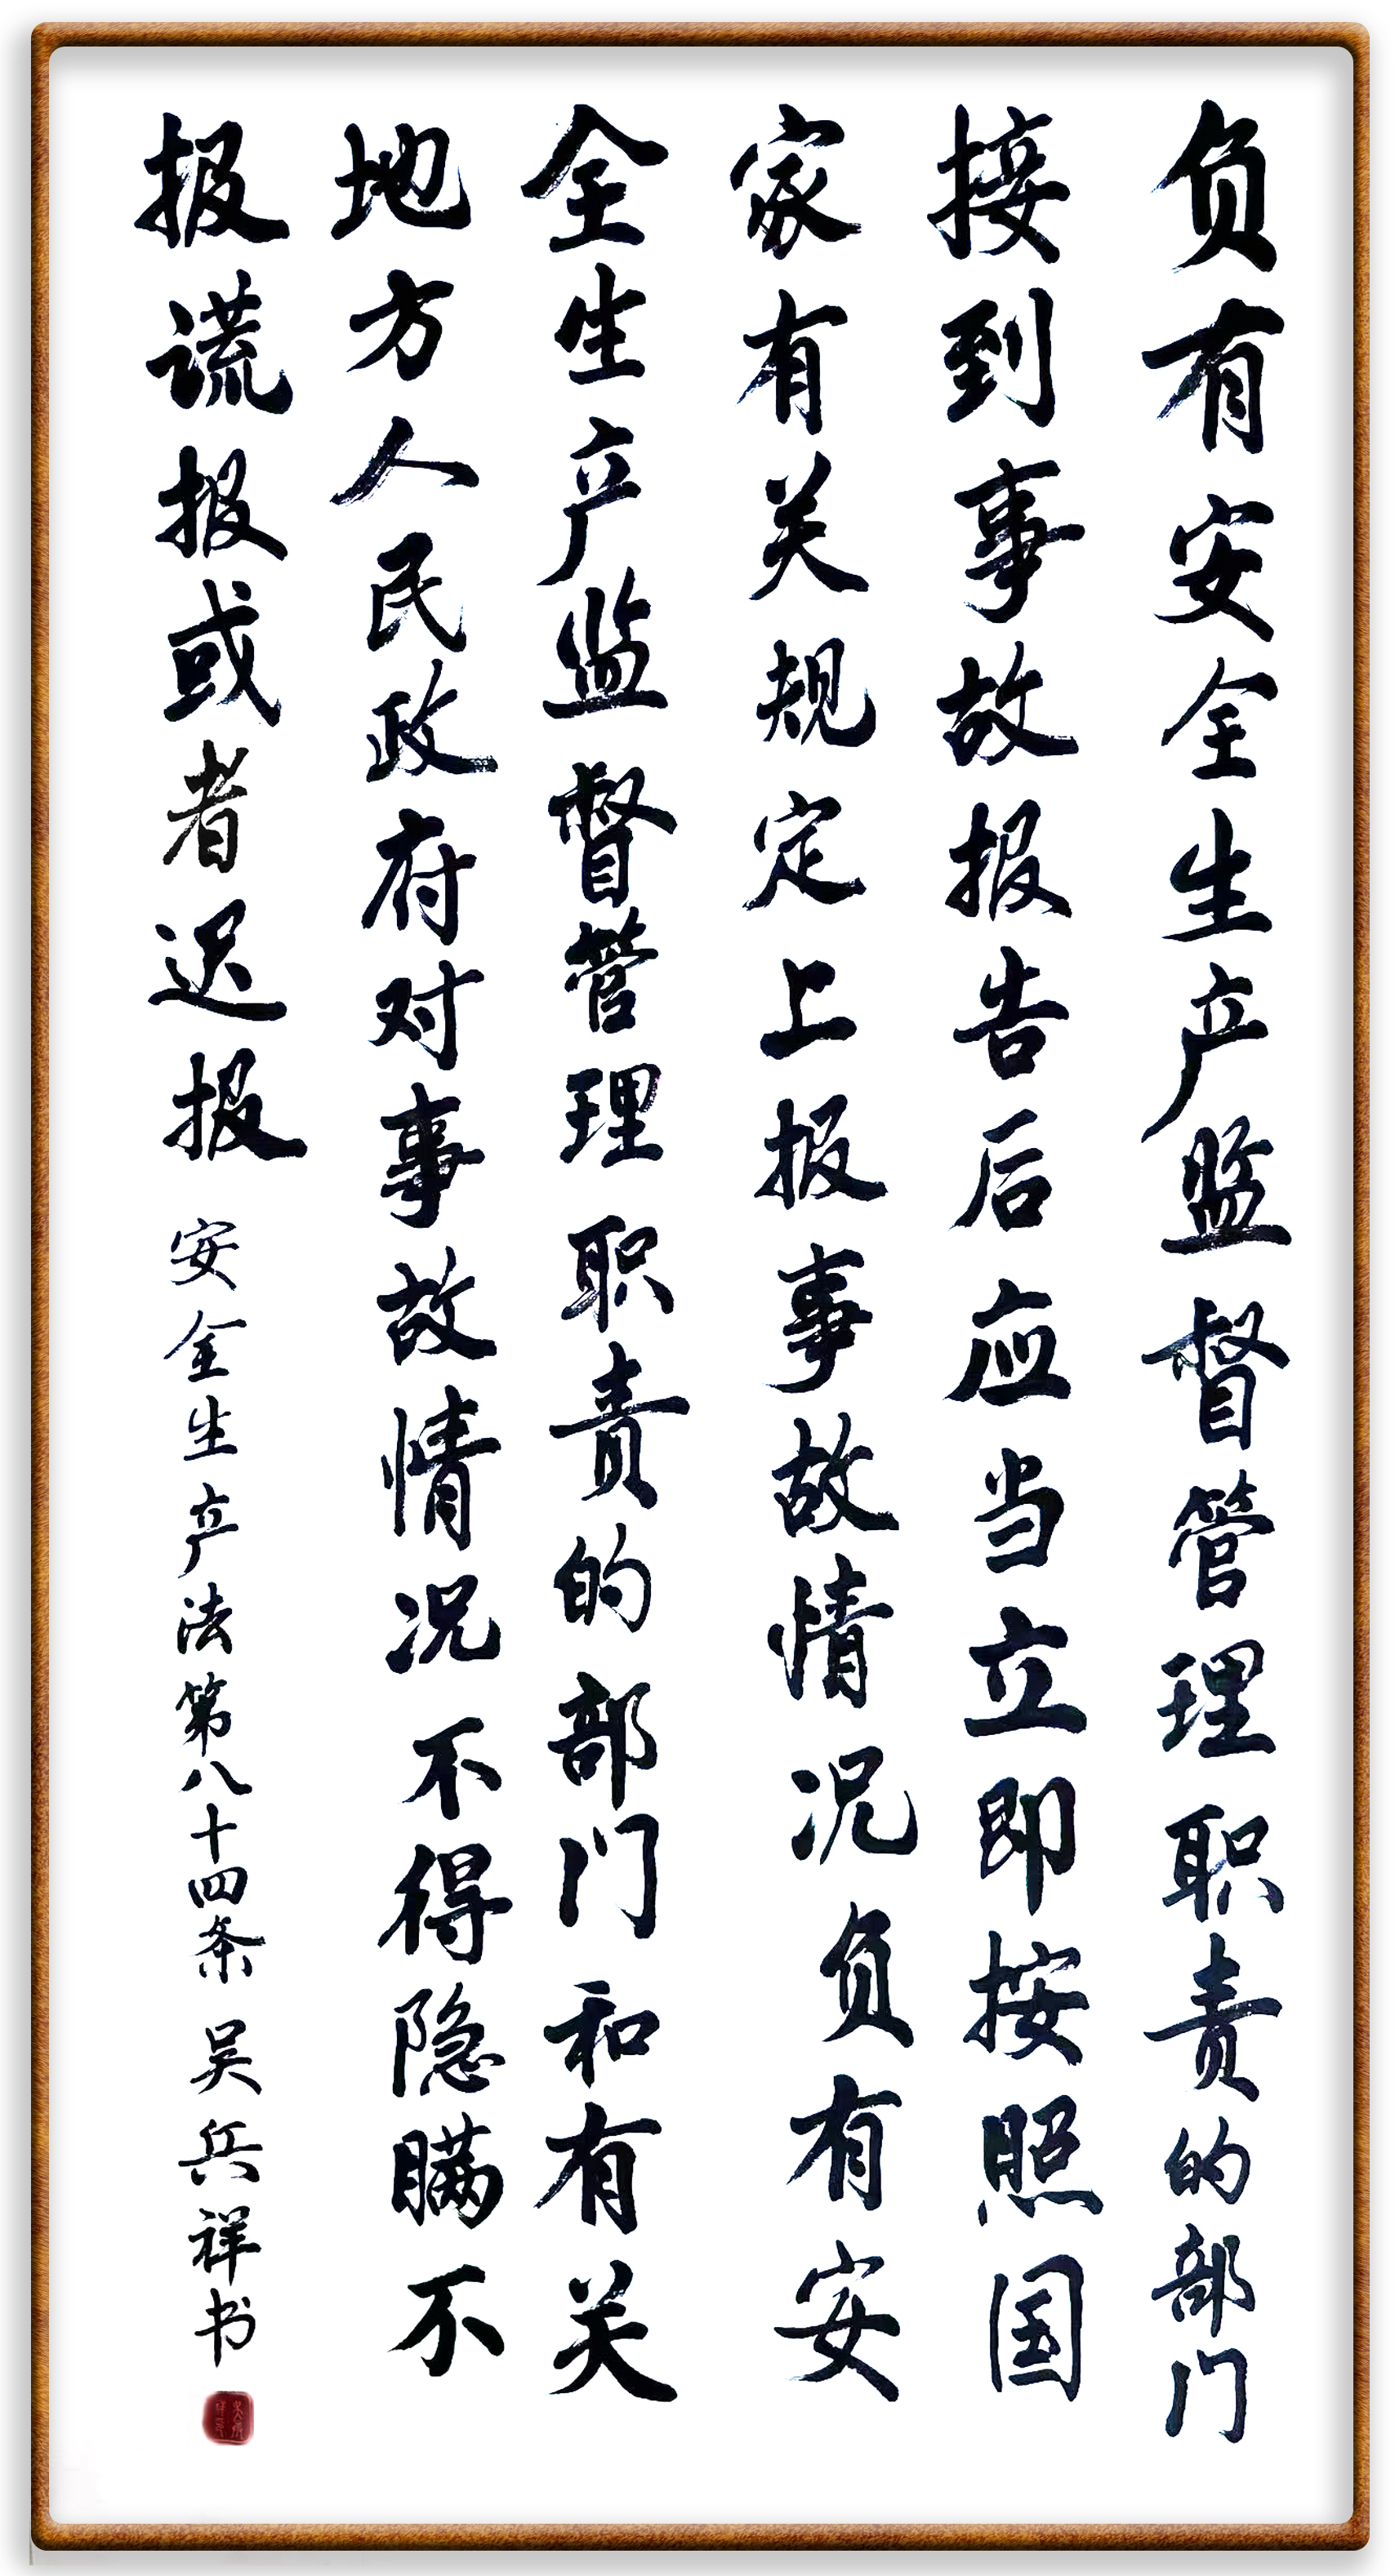 负有安全生产监督管理职责的部门
接到事故报告后应当立即按照国
家有关规定上报事故情况负有安
全生产监督管理职责的部门和有关
地方人民政府对事故情况不得隐瞒不
报谎报或者迟报 安全生产法第八十四条 吴兵祥书